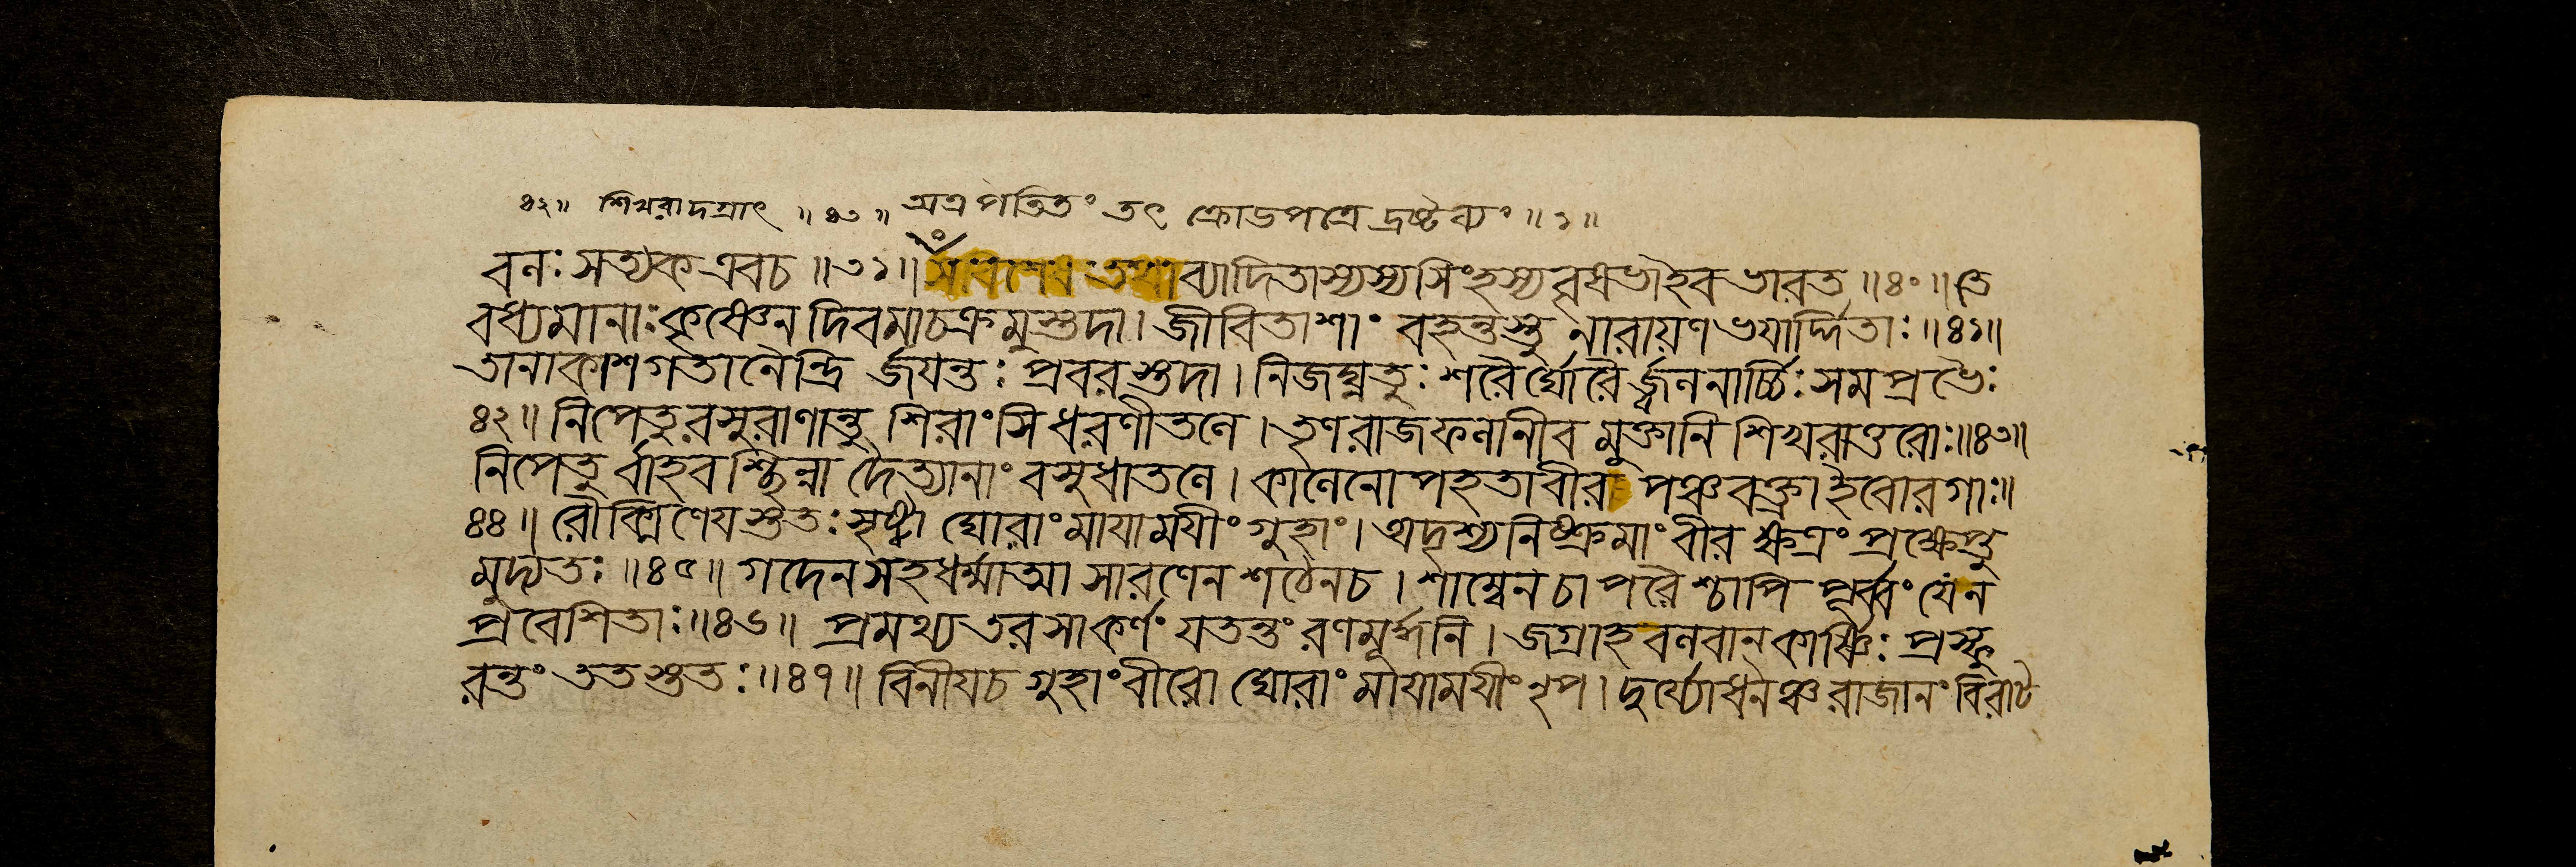 ৪২॥ শিখরাদগ্রাৎ ॥৪৩॥ অত্র পতিতং তৎ ক্রোডপত্রে দ্রষ্টব্যং ॥১॥
বনঃ সত্যক এবচ ॥৩১॥ ব্যাদিতাস্যস্য সিংহস্য ইব ভারত ॥৪০॥ তে
বধ্যমানাঃ কৃষ্ণেন দিবমাচক্রমুস্তদা। জীবিতাশাং বহন্তস্তু নারায়ণভযার্দ্দিতাঃ ॥৪১॥
তানাকাশগতানৈন্দ্রি র্জযন্তঃ প্রবরস্তদা। নিজঘ্নতুঃ শরৈর্ঘোরৈ র্জ্বলনার্চ্চিঃ সমপ্রভৈঃ
৪২॥ নিপেতুরসুরাণান্তু শিরাংসি ধরণীতলে। তৃণরাজফলানীব মুক্তানি শিখরাত্তরোঃ॥৪৩॥
নিপেতু র্বাহবশ্ছিন্না দৈত্যানাং বসুধাতলে। কালেনোপহতাবীরা পঞ্চবক্ত্রা ইবোরগাঃ॥
৪৪॥ রৌক্মিণেযস্ততঃ সৃষ্ট্বা ঘোরাং মাযামযীং গুহাং। অদৃশ্যনিষ্ক্রমাং বীর ক্ষত্রং প্রক্ষেপ্তু
মুদ্যতঃ ॥৪৫॥ গদেন সহ ধর্ম্মাত্মা সারণেন শঠেনচ। শাম্বেন চাপরৈশ্চাপি পূর্ব্বং যেন
প্রবেশিতাঃ॥৪৬॥ প্রমথ্য তরসা কর্ণং যতন্তং রণমূর্দ্ধনি। জগ্রাহ বলবান কার্ষ্ণিঃ প্রস্ফু
রন্তং ততস্ততঃ॥৪৭॥ বিনীযচ গুহাং বীরো ঘোরাং মাযামযীং নৃপ। দুর্য্যোধনঞ্চ রাজানং বিরাট